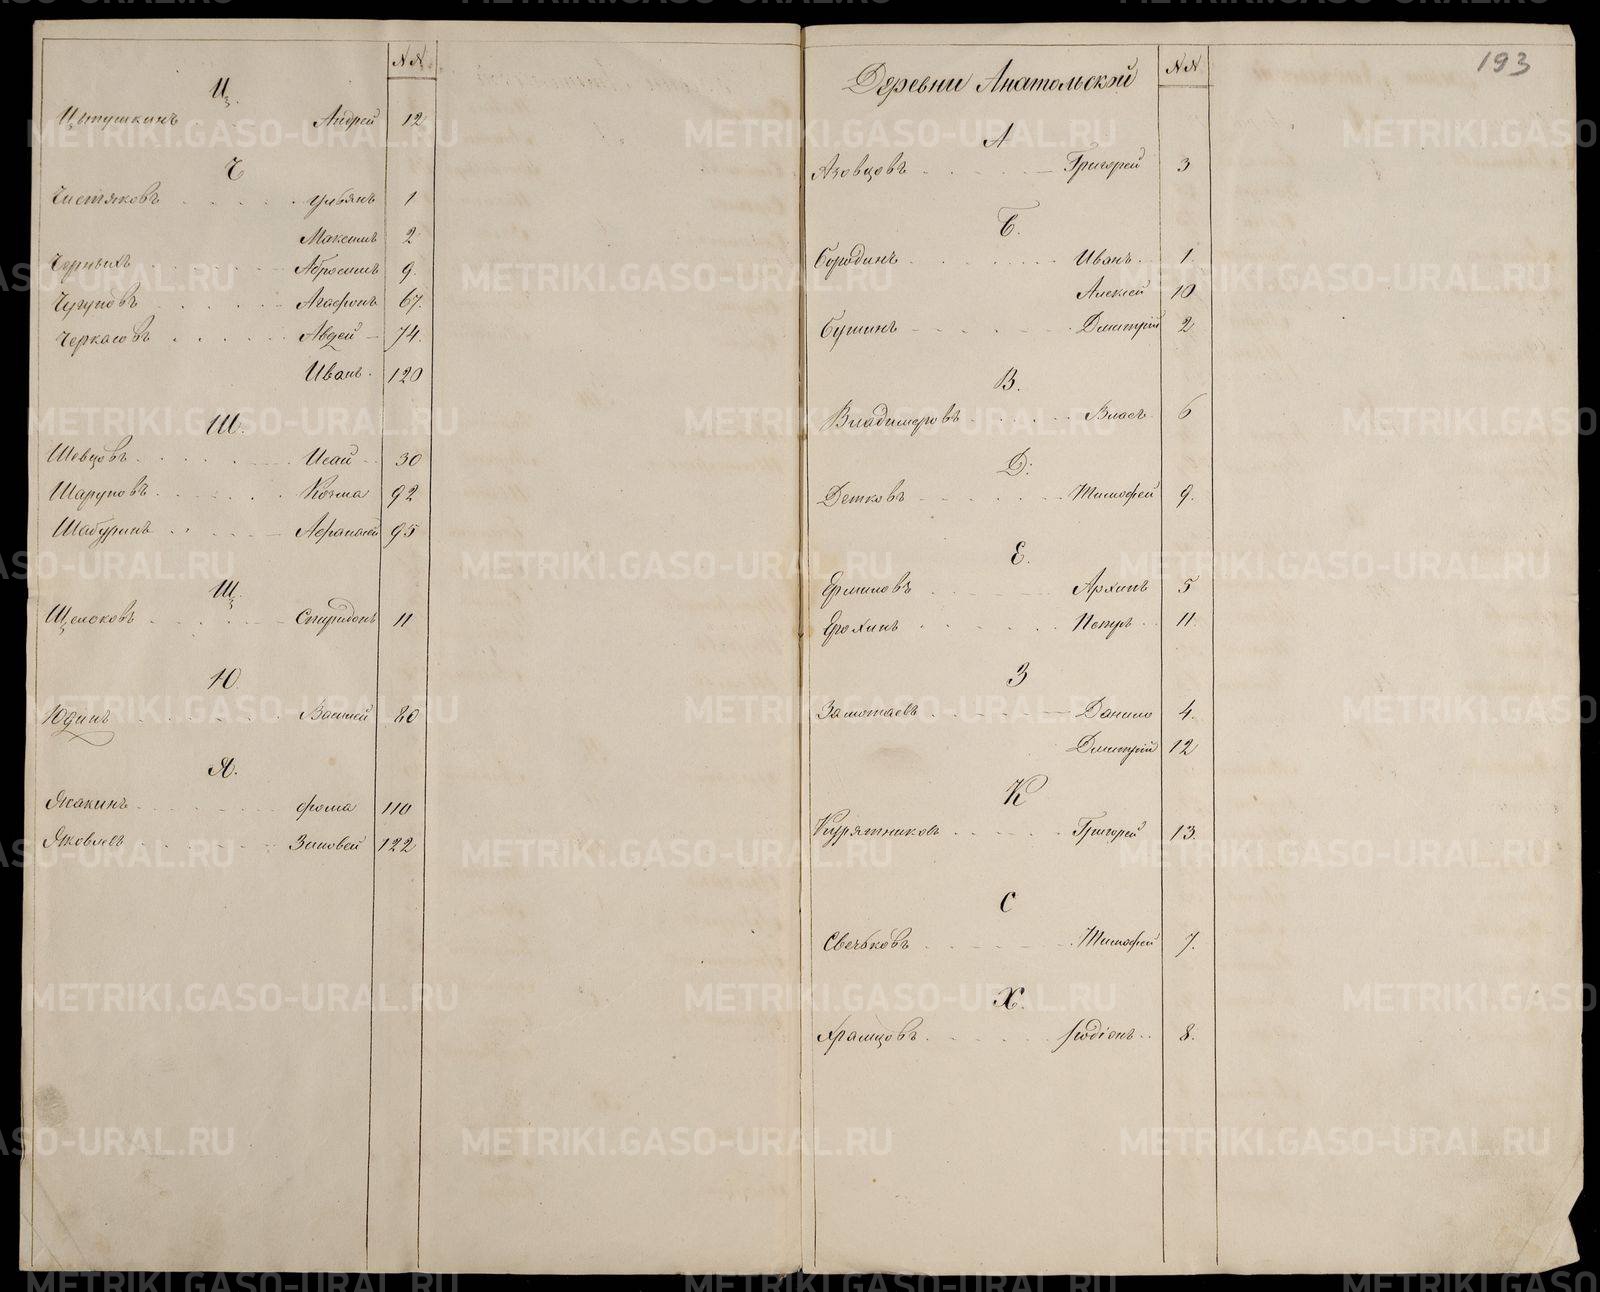 N N
Ц.
Цыпушкинъ Андрей 12
Ч
Чистяковъ ульянъ 1
Максимъ 2
Черныхъ Абросимъ 9.
Чугуновъ Агафонъ 67.
Черкасовъ Авдей 74.
Иванъ 120
Ш.
Шевцовъ Исай 30
Шаруповъ Козма 92
Шабуринъ Афранасей 95
Щ.
Щелоковъ Спиридонъ 11
Ю.
Юдинъ Василей 80
Я.
Якакинъ фома 110
Яковлевъ Зиновей 122
193
Деревни Анатольской N N
А
Азовцовъ Григорей 3
Б.
Бородинъ Иванъ 1.
Алексей 10
Бушинъ Дмитрій 2
В.
Владимеровъ Власъ 6
Д:
Детковъ Тимофей 9.
Е.
Ермиловъ Архипъ 5
Ерохинъ Петръ 11.
З
Замотаевъ Данило 4.
Дмитрій 12
К
Курятниковъ Григорей 13.
С
Свечьковъ Тимофей 7.
Х.
Храмцовъ Родіонъ 8.
METRIKI.GASO-URAL.RU